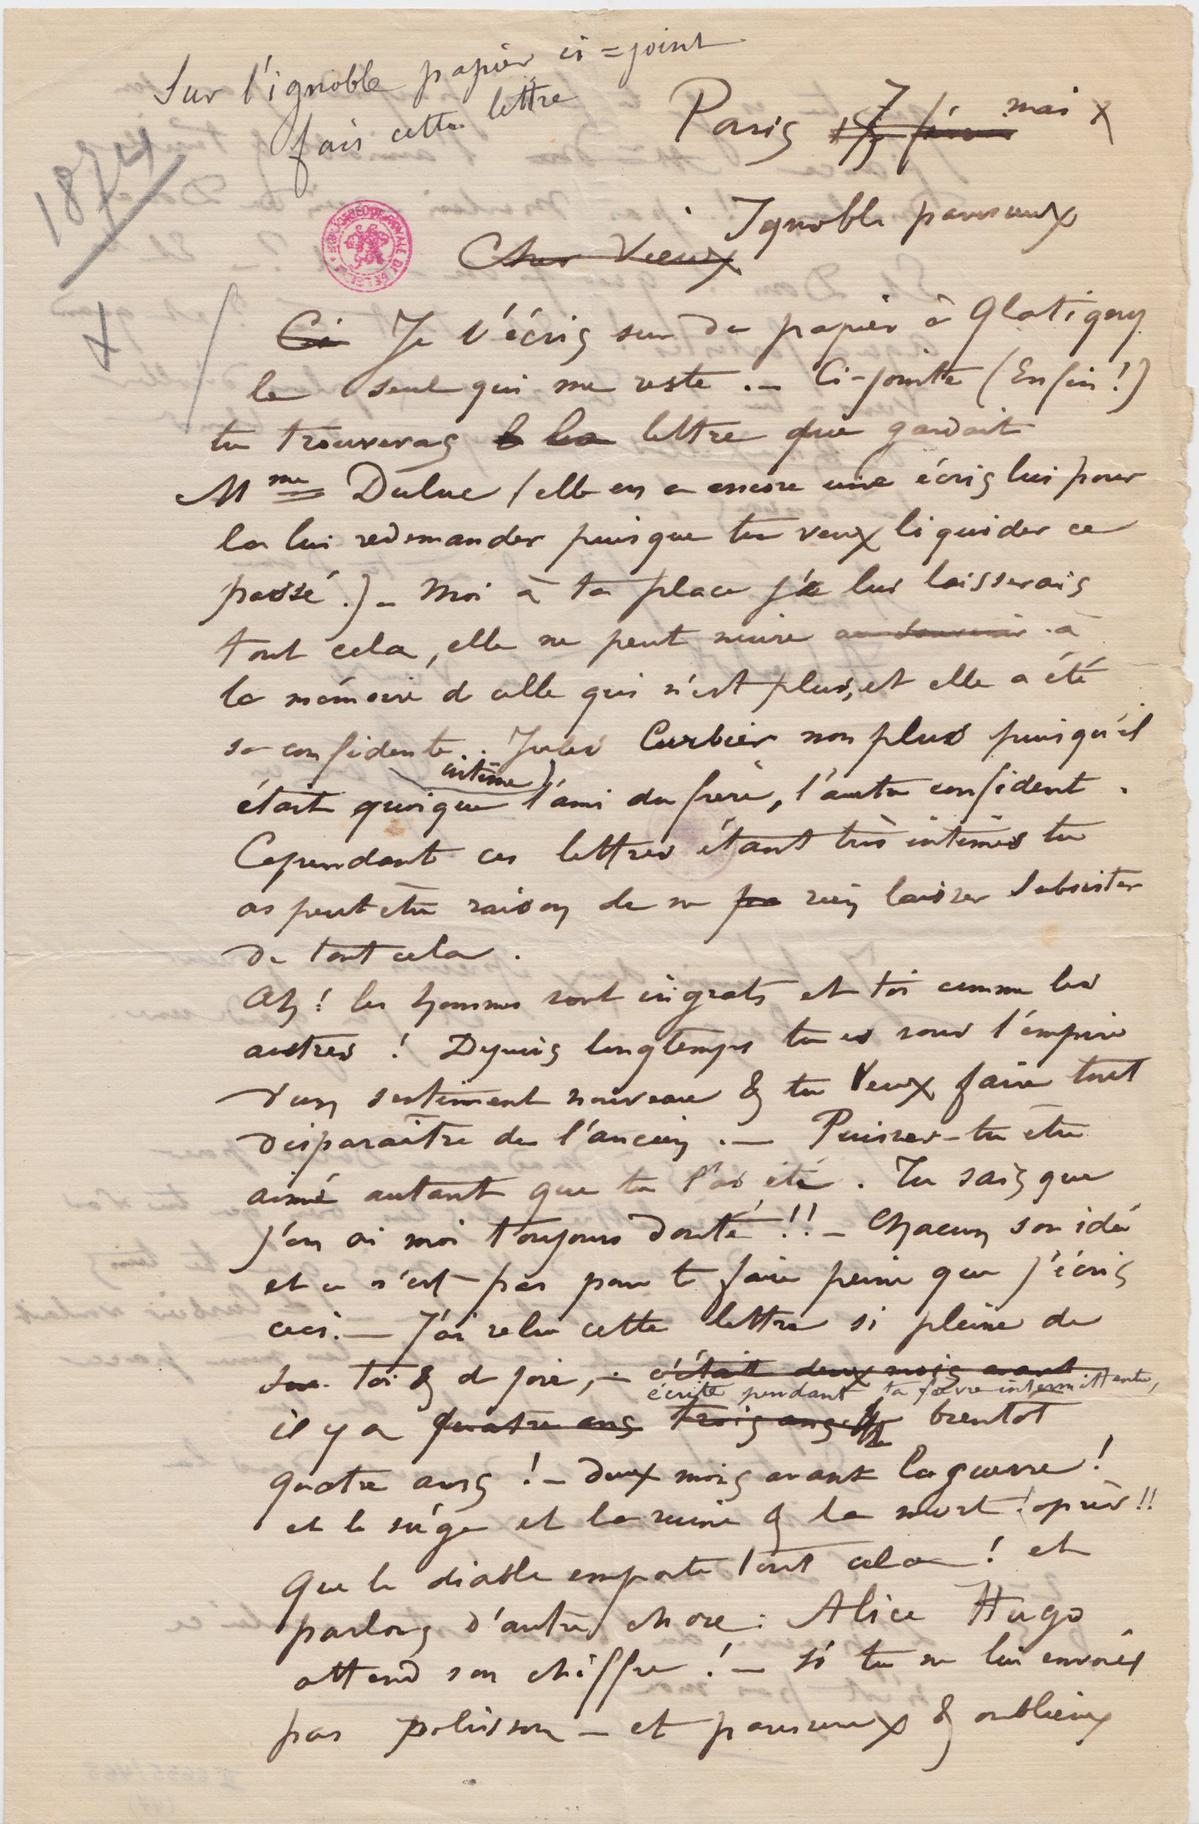 Sur l'ignoble papier ci=joint
fais cette lettre
1874
Paris 7 mai
Cher Vieux Ignoble paresseux
Ci Je t'écris sur du papier à Glatigny
le seul qui me reste. — Ci-jointe (Enfin!)
tu trouveras la lettre que gardait
Mme Duluc (elle en a encore une écris lui pour
la lui redemander puisque tu veux liquider ce
passé.) — Moi à ta place je lui laisserais
tout cela, elle ne peut nuire au souvenir à
la mémoire de celle qui n'est plus, et elle a été
sa confidente. Jules Curbier non plus puisqu'il
intime
était quoique l'ami du frère, l'autre confident.
Cependant ces lettres étant très intimes tu
as peut être raison de ne pa rien laisser subsister
de tout cela.
Ah! les hommes sont ingrats et toi comme les
autres! Depuis longtemps tu es sous l'empire
d'un sentiment nouveau & tu veux faire tout
disparaître de l'ancien. — Puisses-tu être
aimé autant que tu l'as été. Tu sais que
j'en ai moi toujours douté!!! — Chacun son idée
et ce n'est pas pour te faire peine que j'écris
ceci. — J'ai relu cette lettre si pleine de
toi & de joie, — c'était deux mois avant
écrite pendant ta fièvre intermittente,
il y a quatre ans trois ans bientot
quatre ans! — deux mois avant la guerre!
et le siége et la ruine & la mort! après!!
Que le diable emporte tout cela! et
parlons d'autre chose: Alice Hugo
attend son chiffre! — si tu ne lui envoies
pas polisson — et paresseux & oublieux